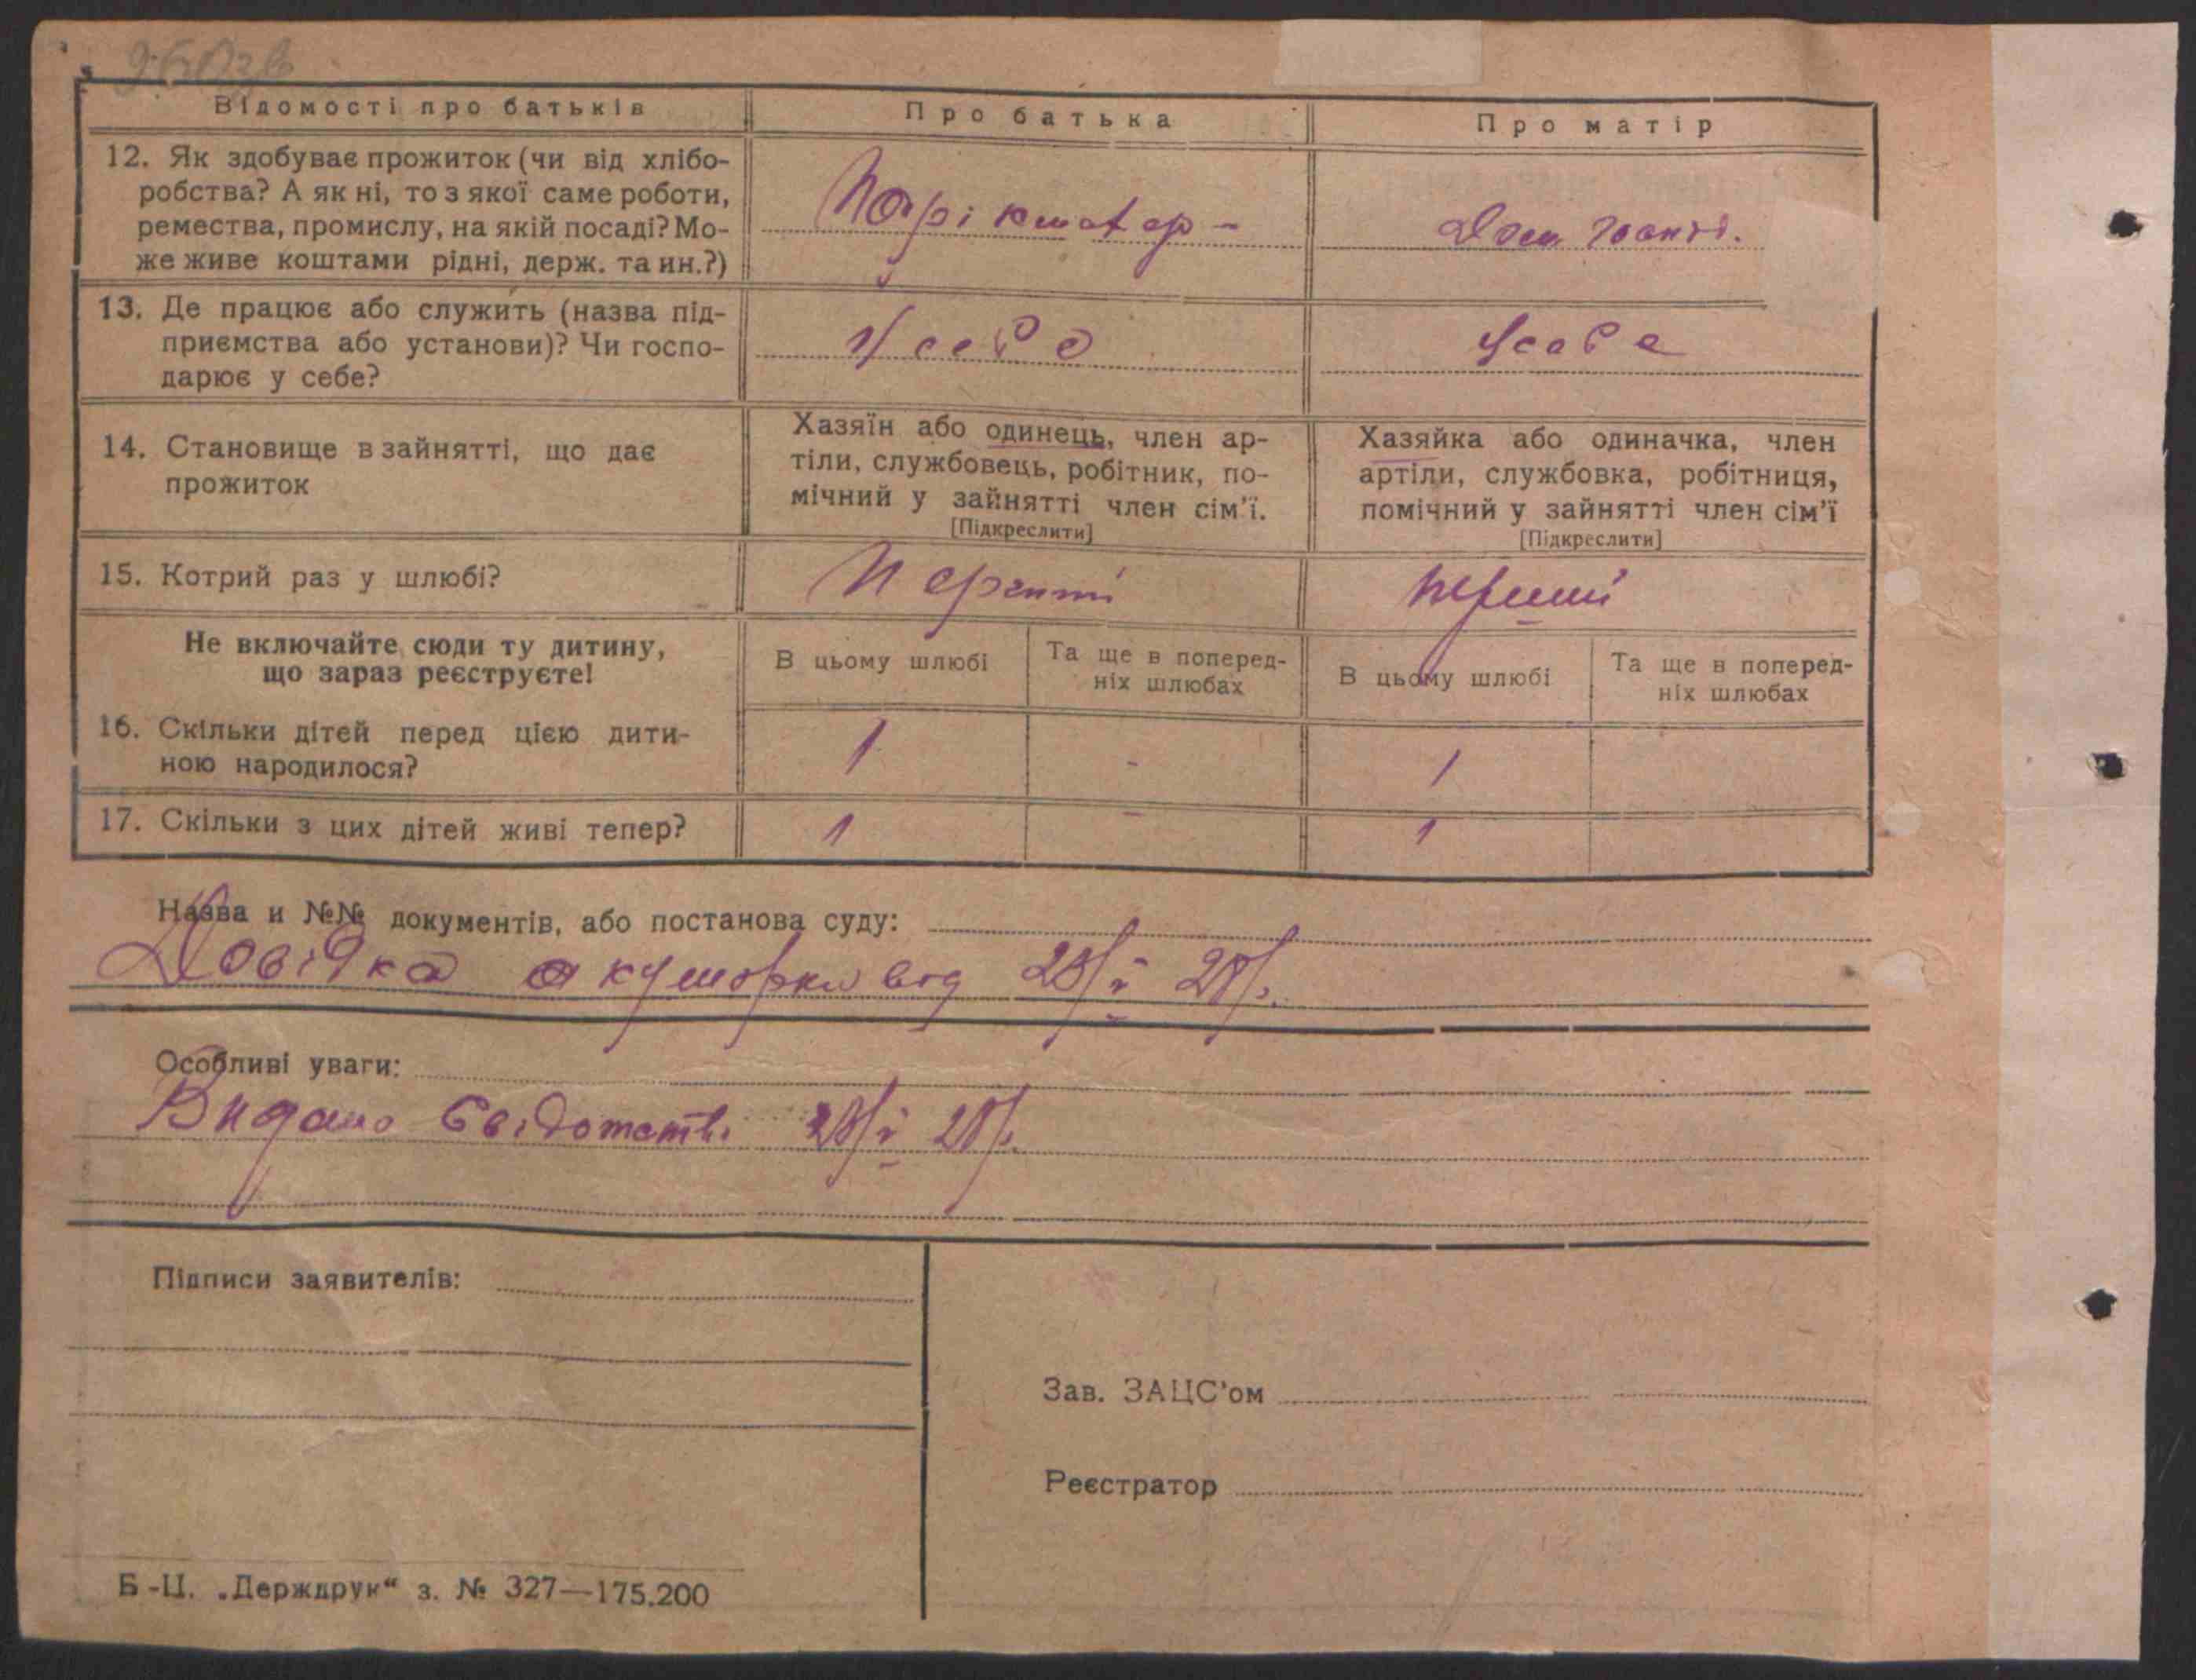 Відомості про батьків
Про батька
Про матір
12. Як здобуває прожиток (чи від хлібо-
робства? А як ні, то з якої саме роботи,
ремества, промислу, на якій посаді? Мо-
же живе коштами рідні, держ. та ин.?)
Парікмахер -
Дом.
13. Де працює або служить (назва під-
приємства або установи)? Чи госпо-
дарює у себе?
У себе
У себе
14. Становище в зайнятті, що дає
прожиток
Хазяїн або одинець, член ар-
тіли, службовець, робітник, по-
мічний у зайнятті член сім'ї.
[Підкреслити]
Хазяйка або одиначка, член
артіли, службовка, робітниця,
помічний у зайнятті член сім'ї
[Підкреслити]
15. Котрий раз у шлюбі?
Перший
перший
Не включайте сюди ту дитину,
що зараз реєструєте!
В цьому шлюбі
Та ще в поперед-
ніх шлюбах
В цьому шлюбі
Та ще в поперед-
ніх шлюбах
16. Скільки дітей перед цією дити-
ною народилося?
1
-
1
17. Скільки з цих дітей живі тепер?
1
-
1
Назва и №№ документів, або постанова суду:
Довідка акушорки від 28/V 28р.
Особливі уваги:
Видано Свідотство 28/V 28р.
Підписи заявителів:
Зав. ЗАЦС'ом
Реєстратор
Б-Ц. „Держдрук“ з. № 327—175.200